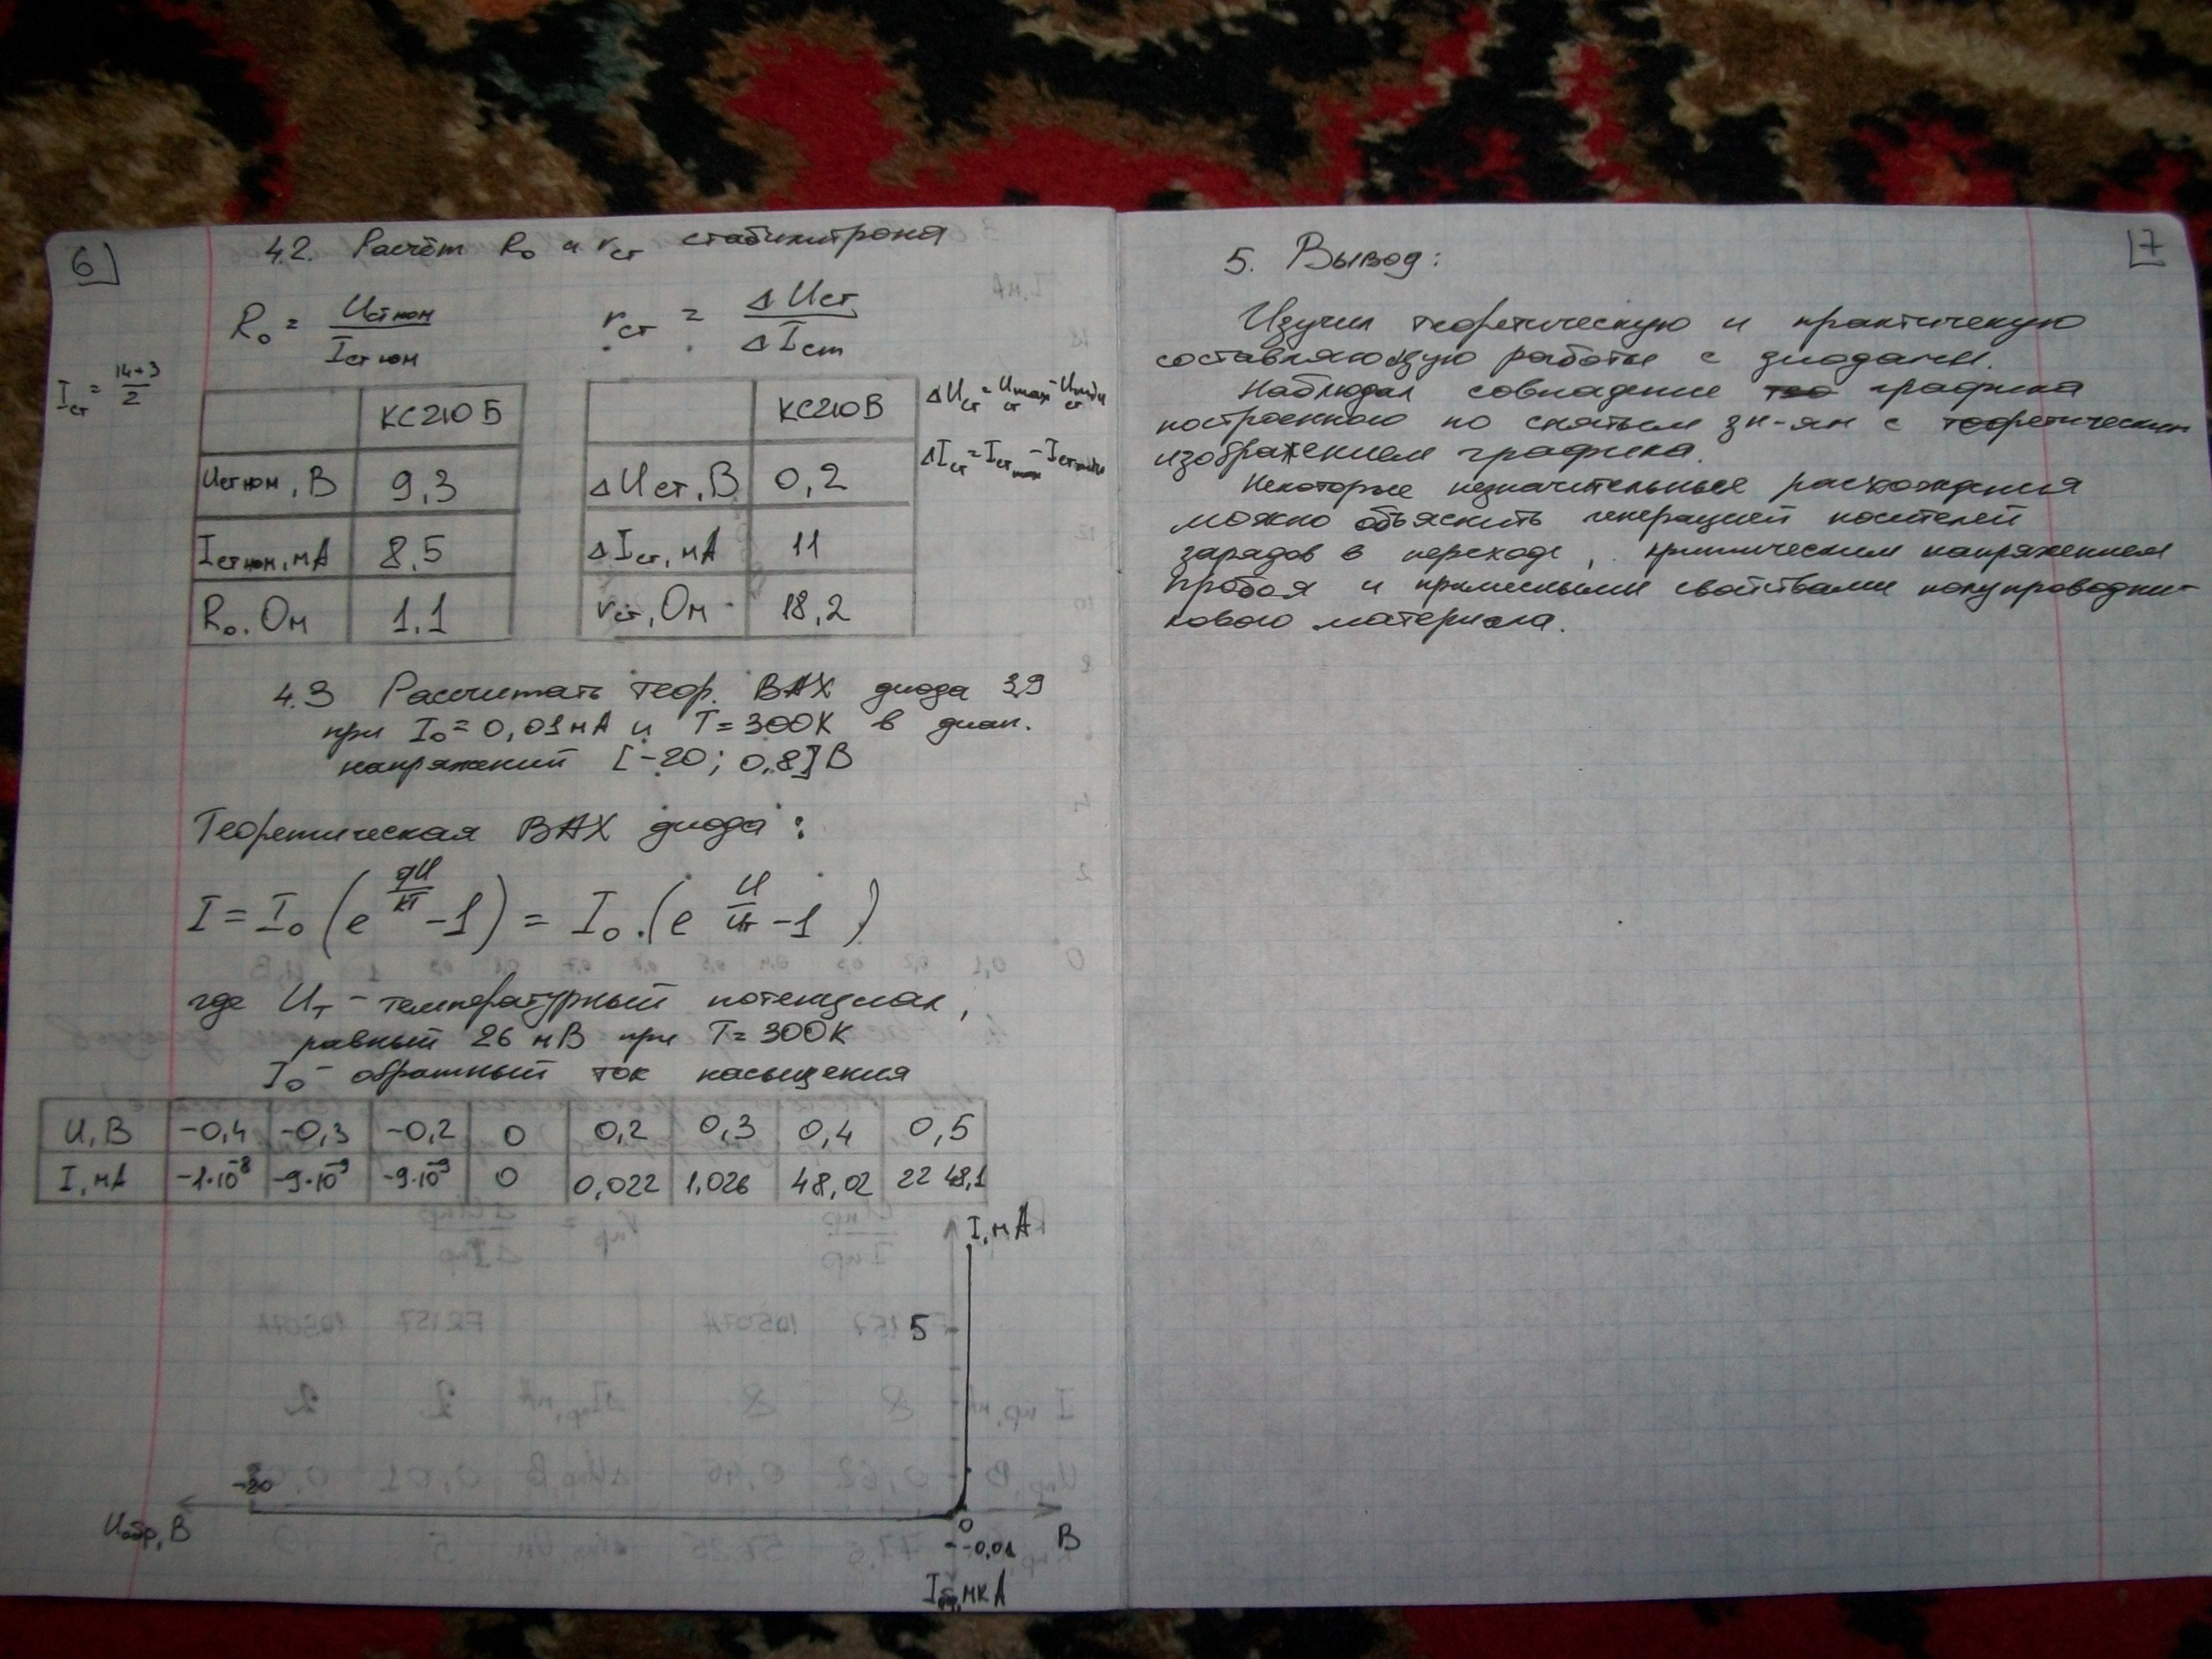 6
4.2. Расчёт R₀ и rст стабилитрона
R₀ = Uст ном / Iст ном
rст = ΔUст / ΔIст
Iст = (14+3)/2
КС210Б
Uст ном, В 9,3
Iст ном, мА 8,5
R₀, Ом 1,1
КС210В
ΔUст, В 0,2
ΔIст, мА 11
rст, Ом 18,2
ΔUст = Uст max - Uст min
ΔIст = Iст max - Iст min
4.3 Рассчитать теор. ВАХ диода
при I₀ = 0,01 мА и T = 300К в диап.
напряжений [-20; 0,8] В
Теоретическая ВАХ диода:
I = I₀ (e^(qU/kT) - 1) = I₀ · (e^(U/Uт) - 1)
где Uт - температурный потенциал,
равный 26 мВ при T = 300К
I₀ - обратный ток насыщения
U, В -0,4 -0,3 -0,2 0 0,2 0,3 0,4 0,5
I, мА -1·10⁻⁸ -9·10⁻⁹ -9·10⁻⁹ 0 0,022 1,026 48,02 22 48,1
I, мА
5
-20
Uобр, В
0
В
-0,01
Iобр, мкА
7
5. Вывод:
Изучил теоретическую и практичекую
составляющую работы с диодами.
Наблюдал совпадение тео графика
построенного по снятым зн-ям с теоретическим
изображением графика.
Некоторые незначительные расхождения
можно объяснить генерацией носителей
зарядов в переходе, критическим напряжением
пробоя и примесными свойствами полупроводни-
кового материала.